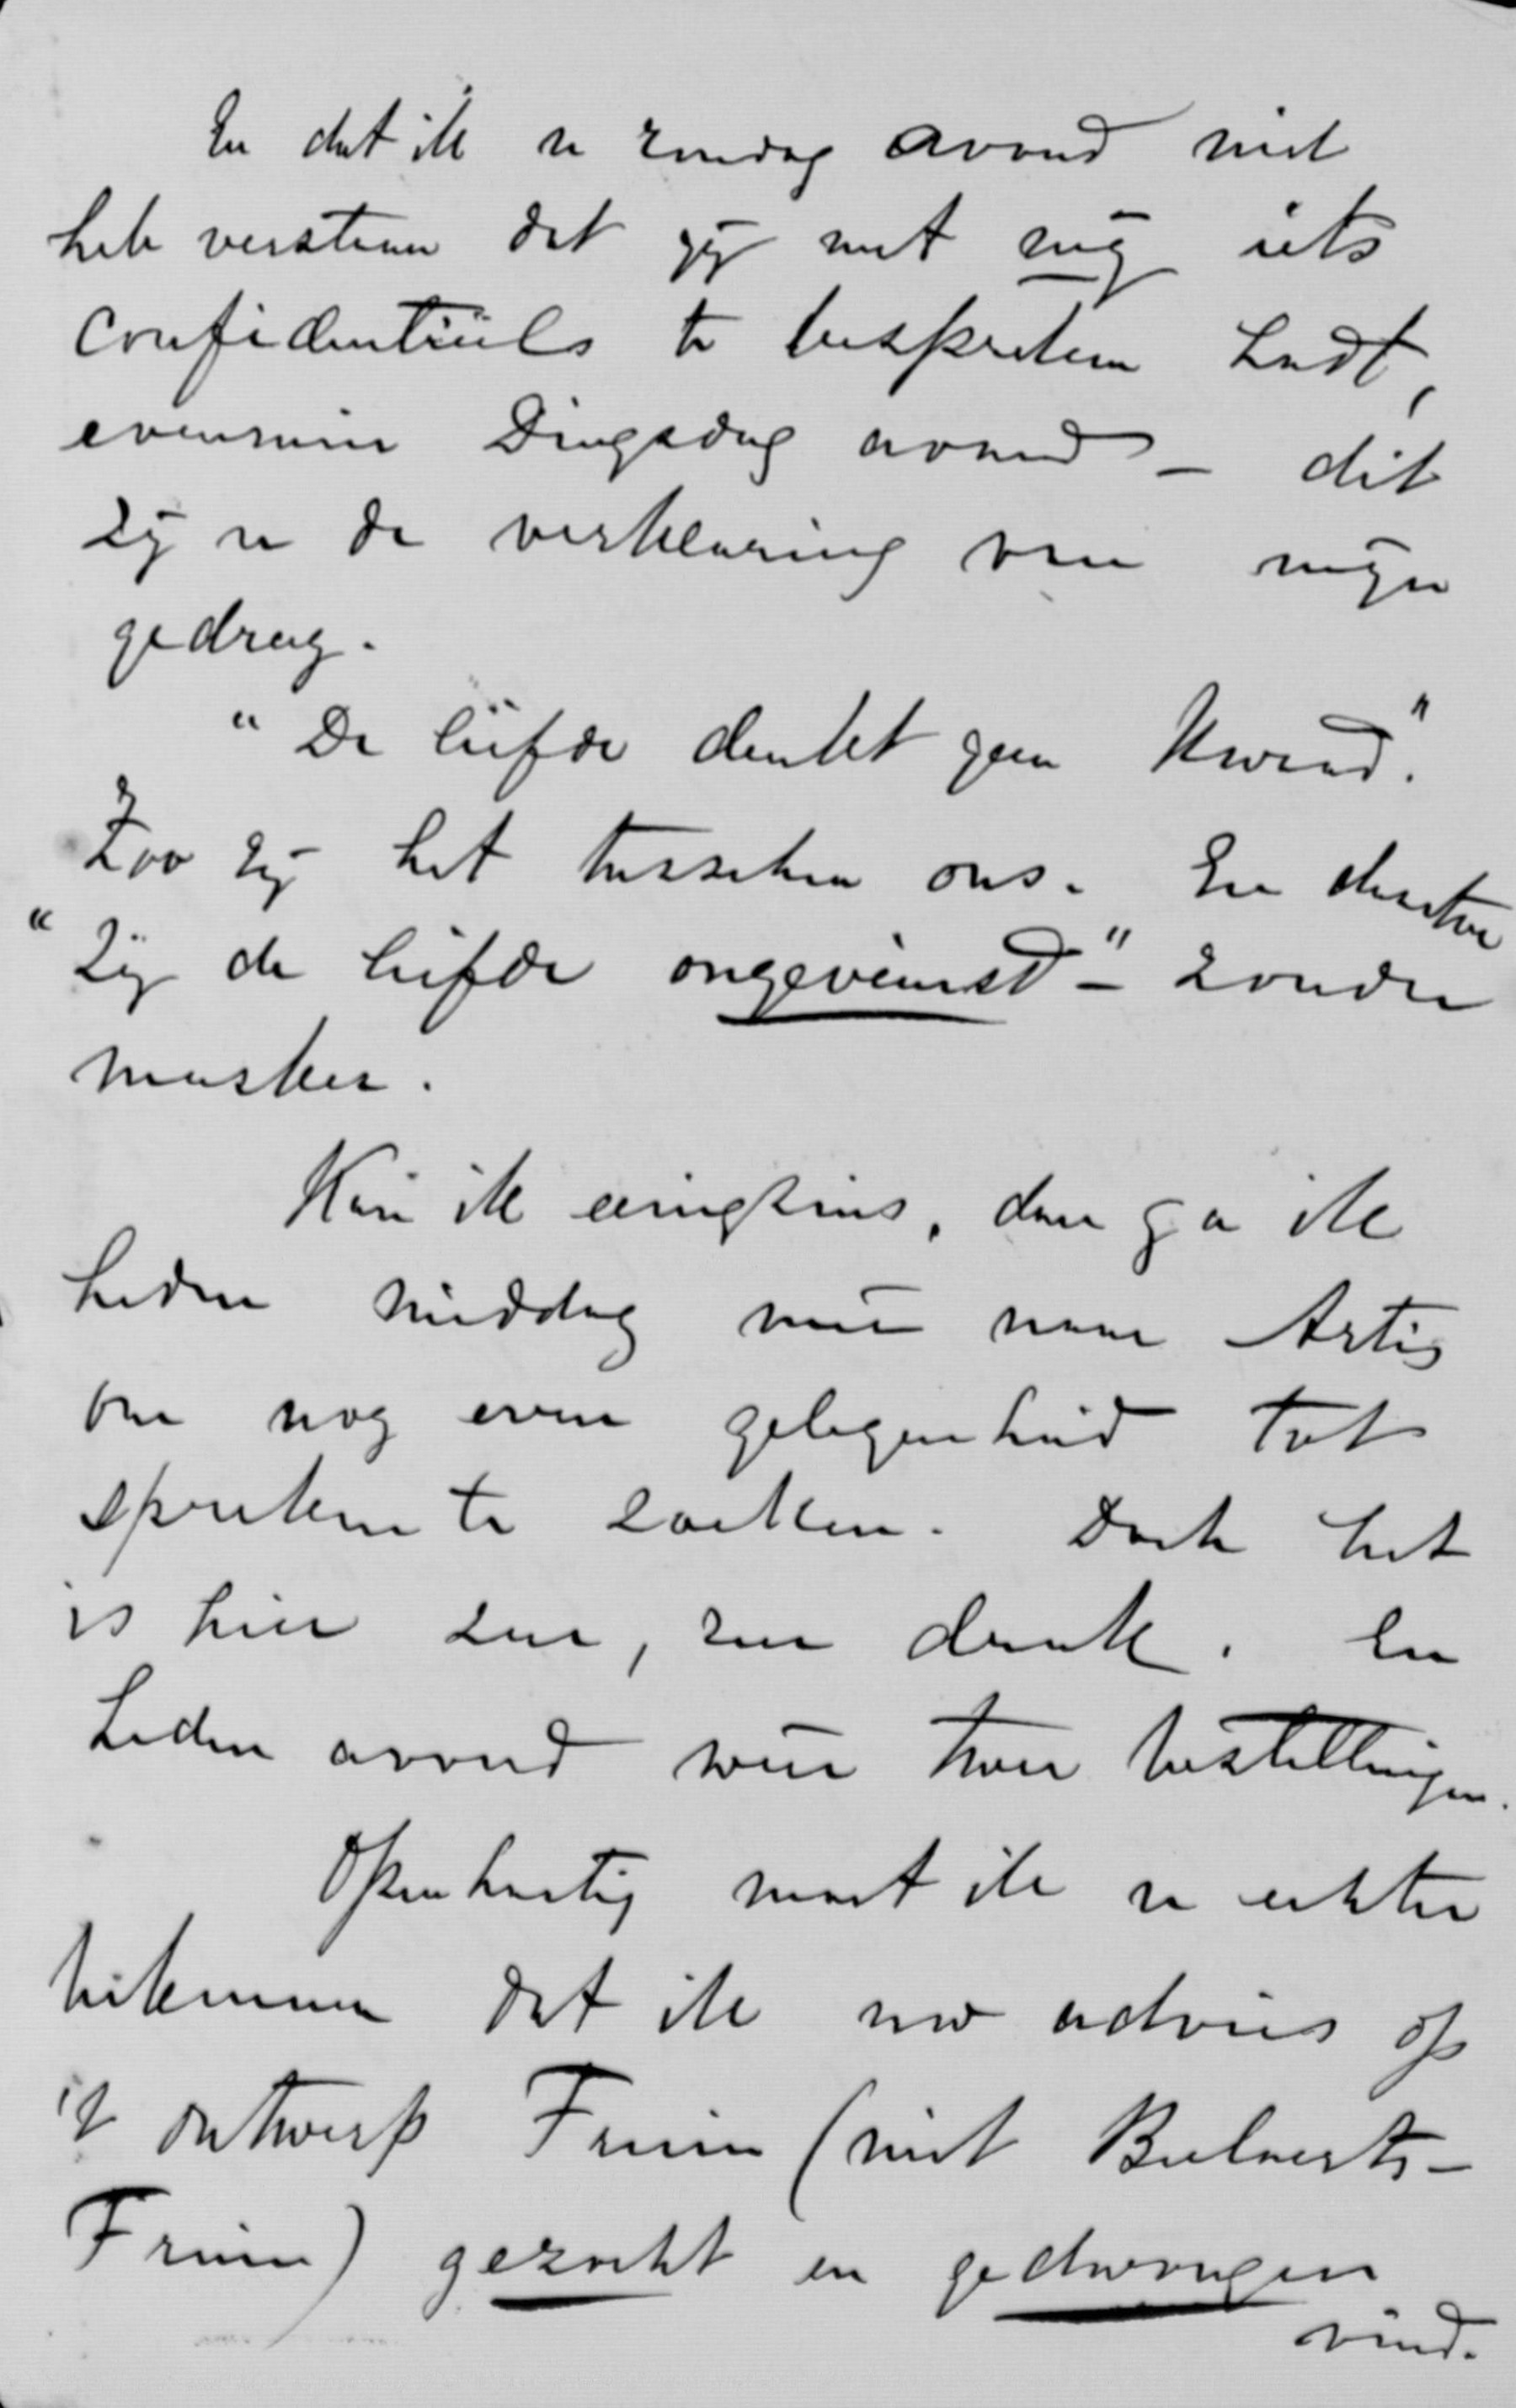 En dat ik u zondag avond niet
heb verstaan dat gij met mij iets
confidentieels te bespreken hadt,
evenmin Dingsdag avond – dit
zij u de verklaring van mijn
gedrag.
"De liefde denket geen Kwaad."
Zoo zij het tusschen ons. En
"Zij de liefde ongeveinsd" – zonder
masker.
Kan ik eenigszins, dan ga ik
heden middag mee naar Artis
om nog even gelegenheid tot
spreken te zoeken. Doch het
is hier zeer, zeer druk. En
heden avond weer twee bestellingen.
Openhartig moet ik u echter
bekennen dat ik uw advies op
't ontwerp Fruin (niet Beelaerts-
Fruin) gezocht en gedwongen
vind.